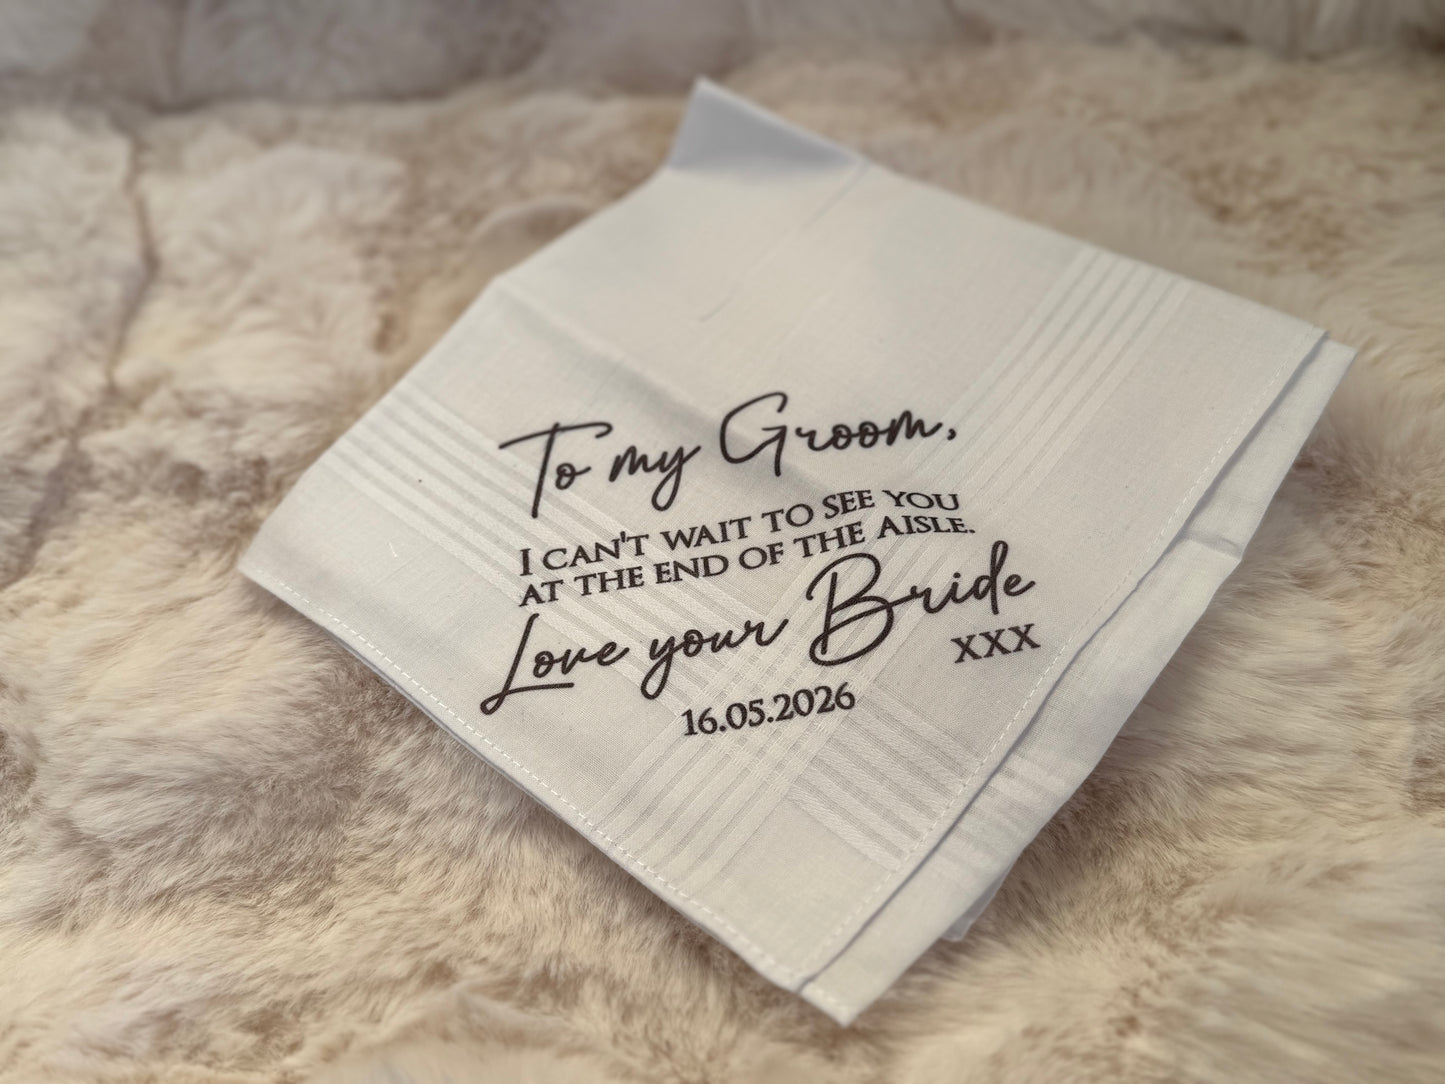 To my Groom,
I CAN'T WAIT TO SEE YOU
AT THE END OF THE AISLE.
Love your Bride
XXX
16.05.2026